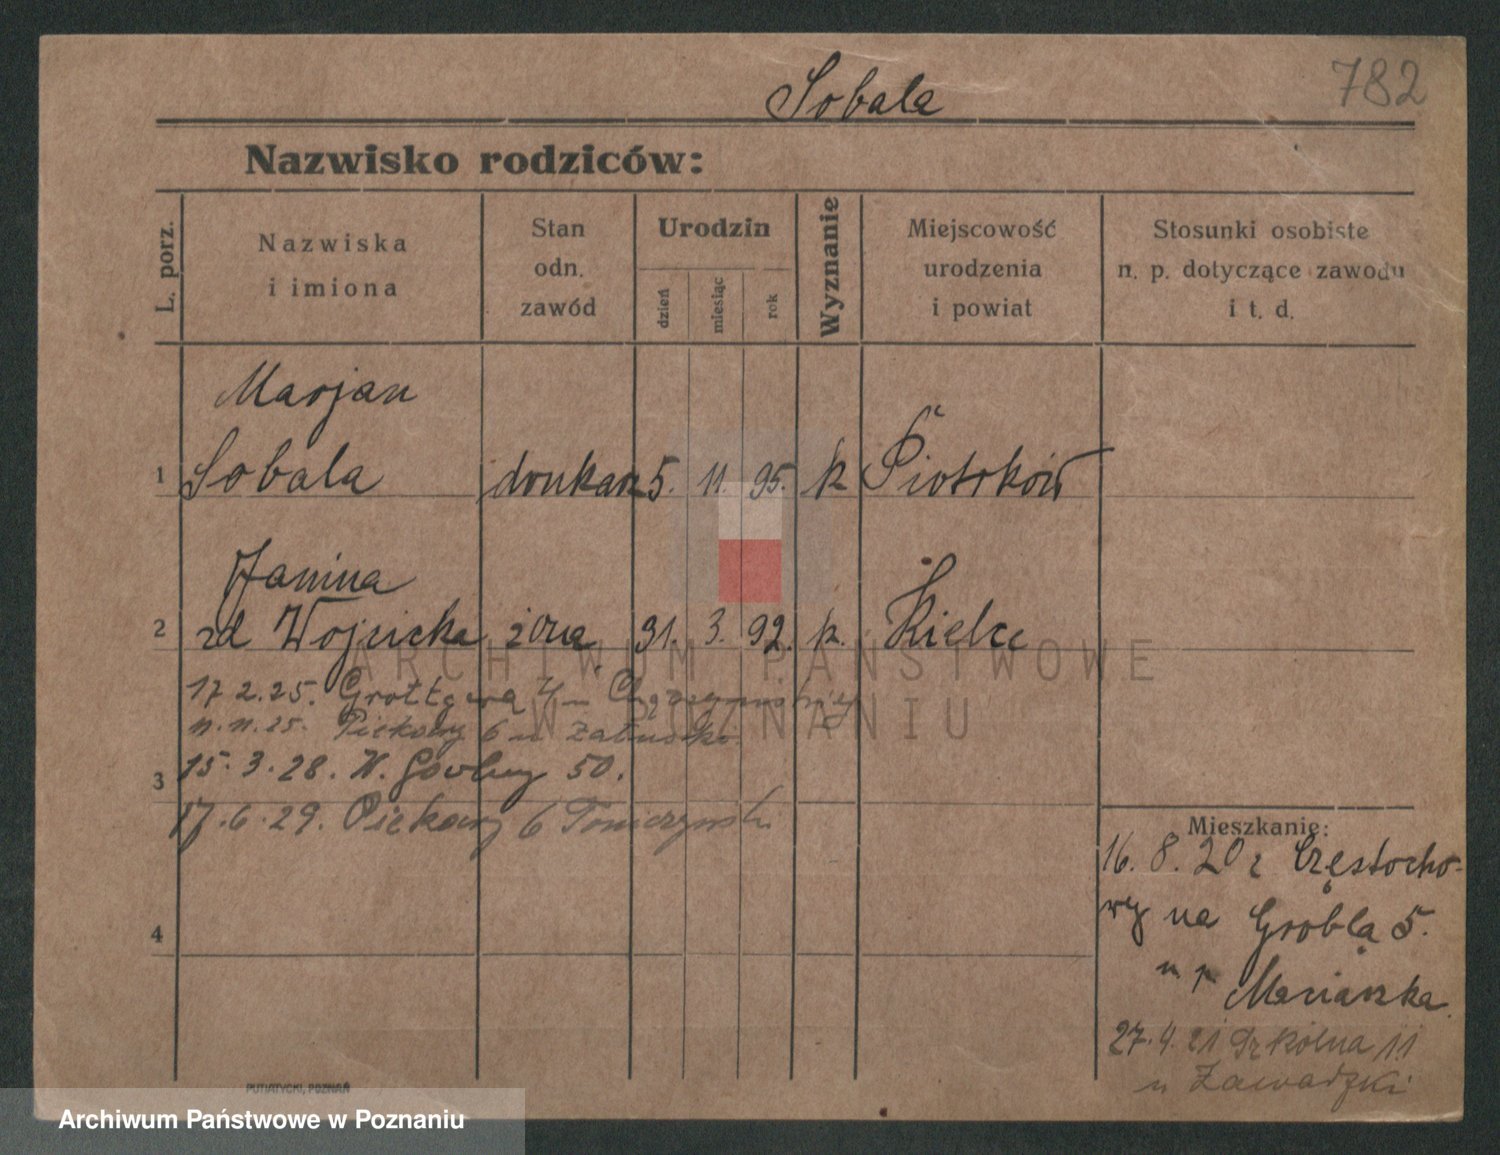 Sobala
782
Nazwisko rodziców:
L. porz.
Nazwiska
i imiona
Stan
odn.
zawód
Urodzin
dzień
miesiąc
rok
Wyznanie
Miejscowość
urodzenia
i powiat
Stosunki osobiste
n. p. dotyczące zawodu
i t. d.
Marjan
1 Sobala drukarz 5. 11. 95. k Piotrków
Janina
2 zd Wojcicka żona 31. 3. 92. k. Kielce
17.2.25. Grottgera
11.11.25. Piekary 6 u
3
15.3.28. 50.
17.6.29. Piekary 6
4
Mieszkanie:
16. 8. 20 z Częstocho-
wy na Grobla 5.
u p
27.4.21 Szkolna 11
u Zawadzki
PUTIATYCKI, POZNAŃ
ARCHIWUM PAŃSTWOWE
W POZNANIU
Archiwum Państwowe w Poznaniu